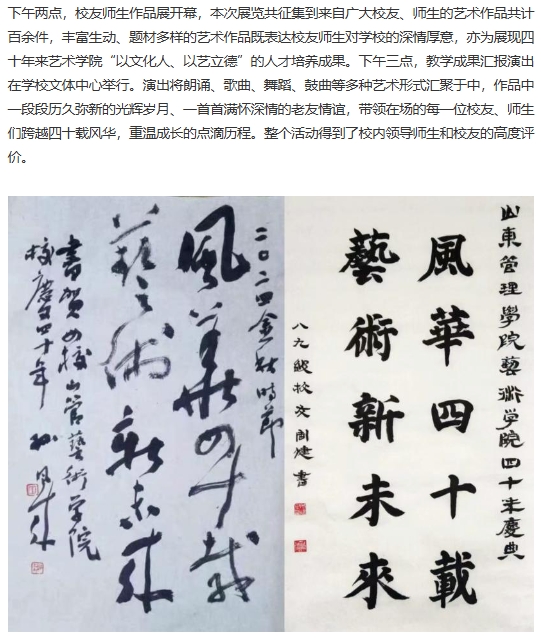 下午两点，校友师生作品展开幕，本次展览共征集到来自广大校友、师生的艺术作品共计
百余件，丰富生动、题材多样的艺术作品既表达校友师生对学校的深情厚意，亦为展现四
十年来艺术学院“以文化人、以艺立德”的人才培养成果。下午三点，教学成果汇报演出
在学校文体中心举行。演出将朗诵、歌曲、舞蹈、鼓曲等多种艺术形式汇聚于中，作品中
一段段历久弥新的光辉岁月、一首首满怀深情的老友情谊，带领在场的每一位校友、师生
们跨越四十载风华，重温成长的点滴历程。整个活动得到了校内领导师生和校友的高度评
价。
二〇二四金秋時節
風华四十載
艺术新未来
書贺母校山管藝術学院
校慶四十年
山東管理學院藝術學院四十年慶典
風華四十載
藝術新未來
八九級校友 書